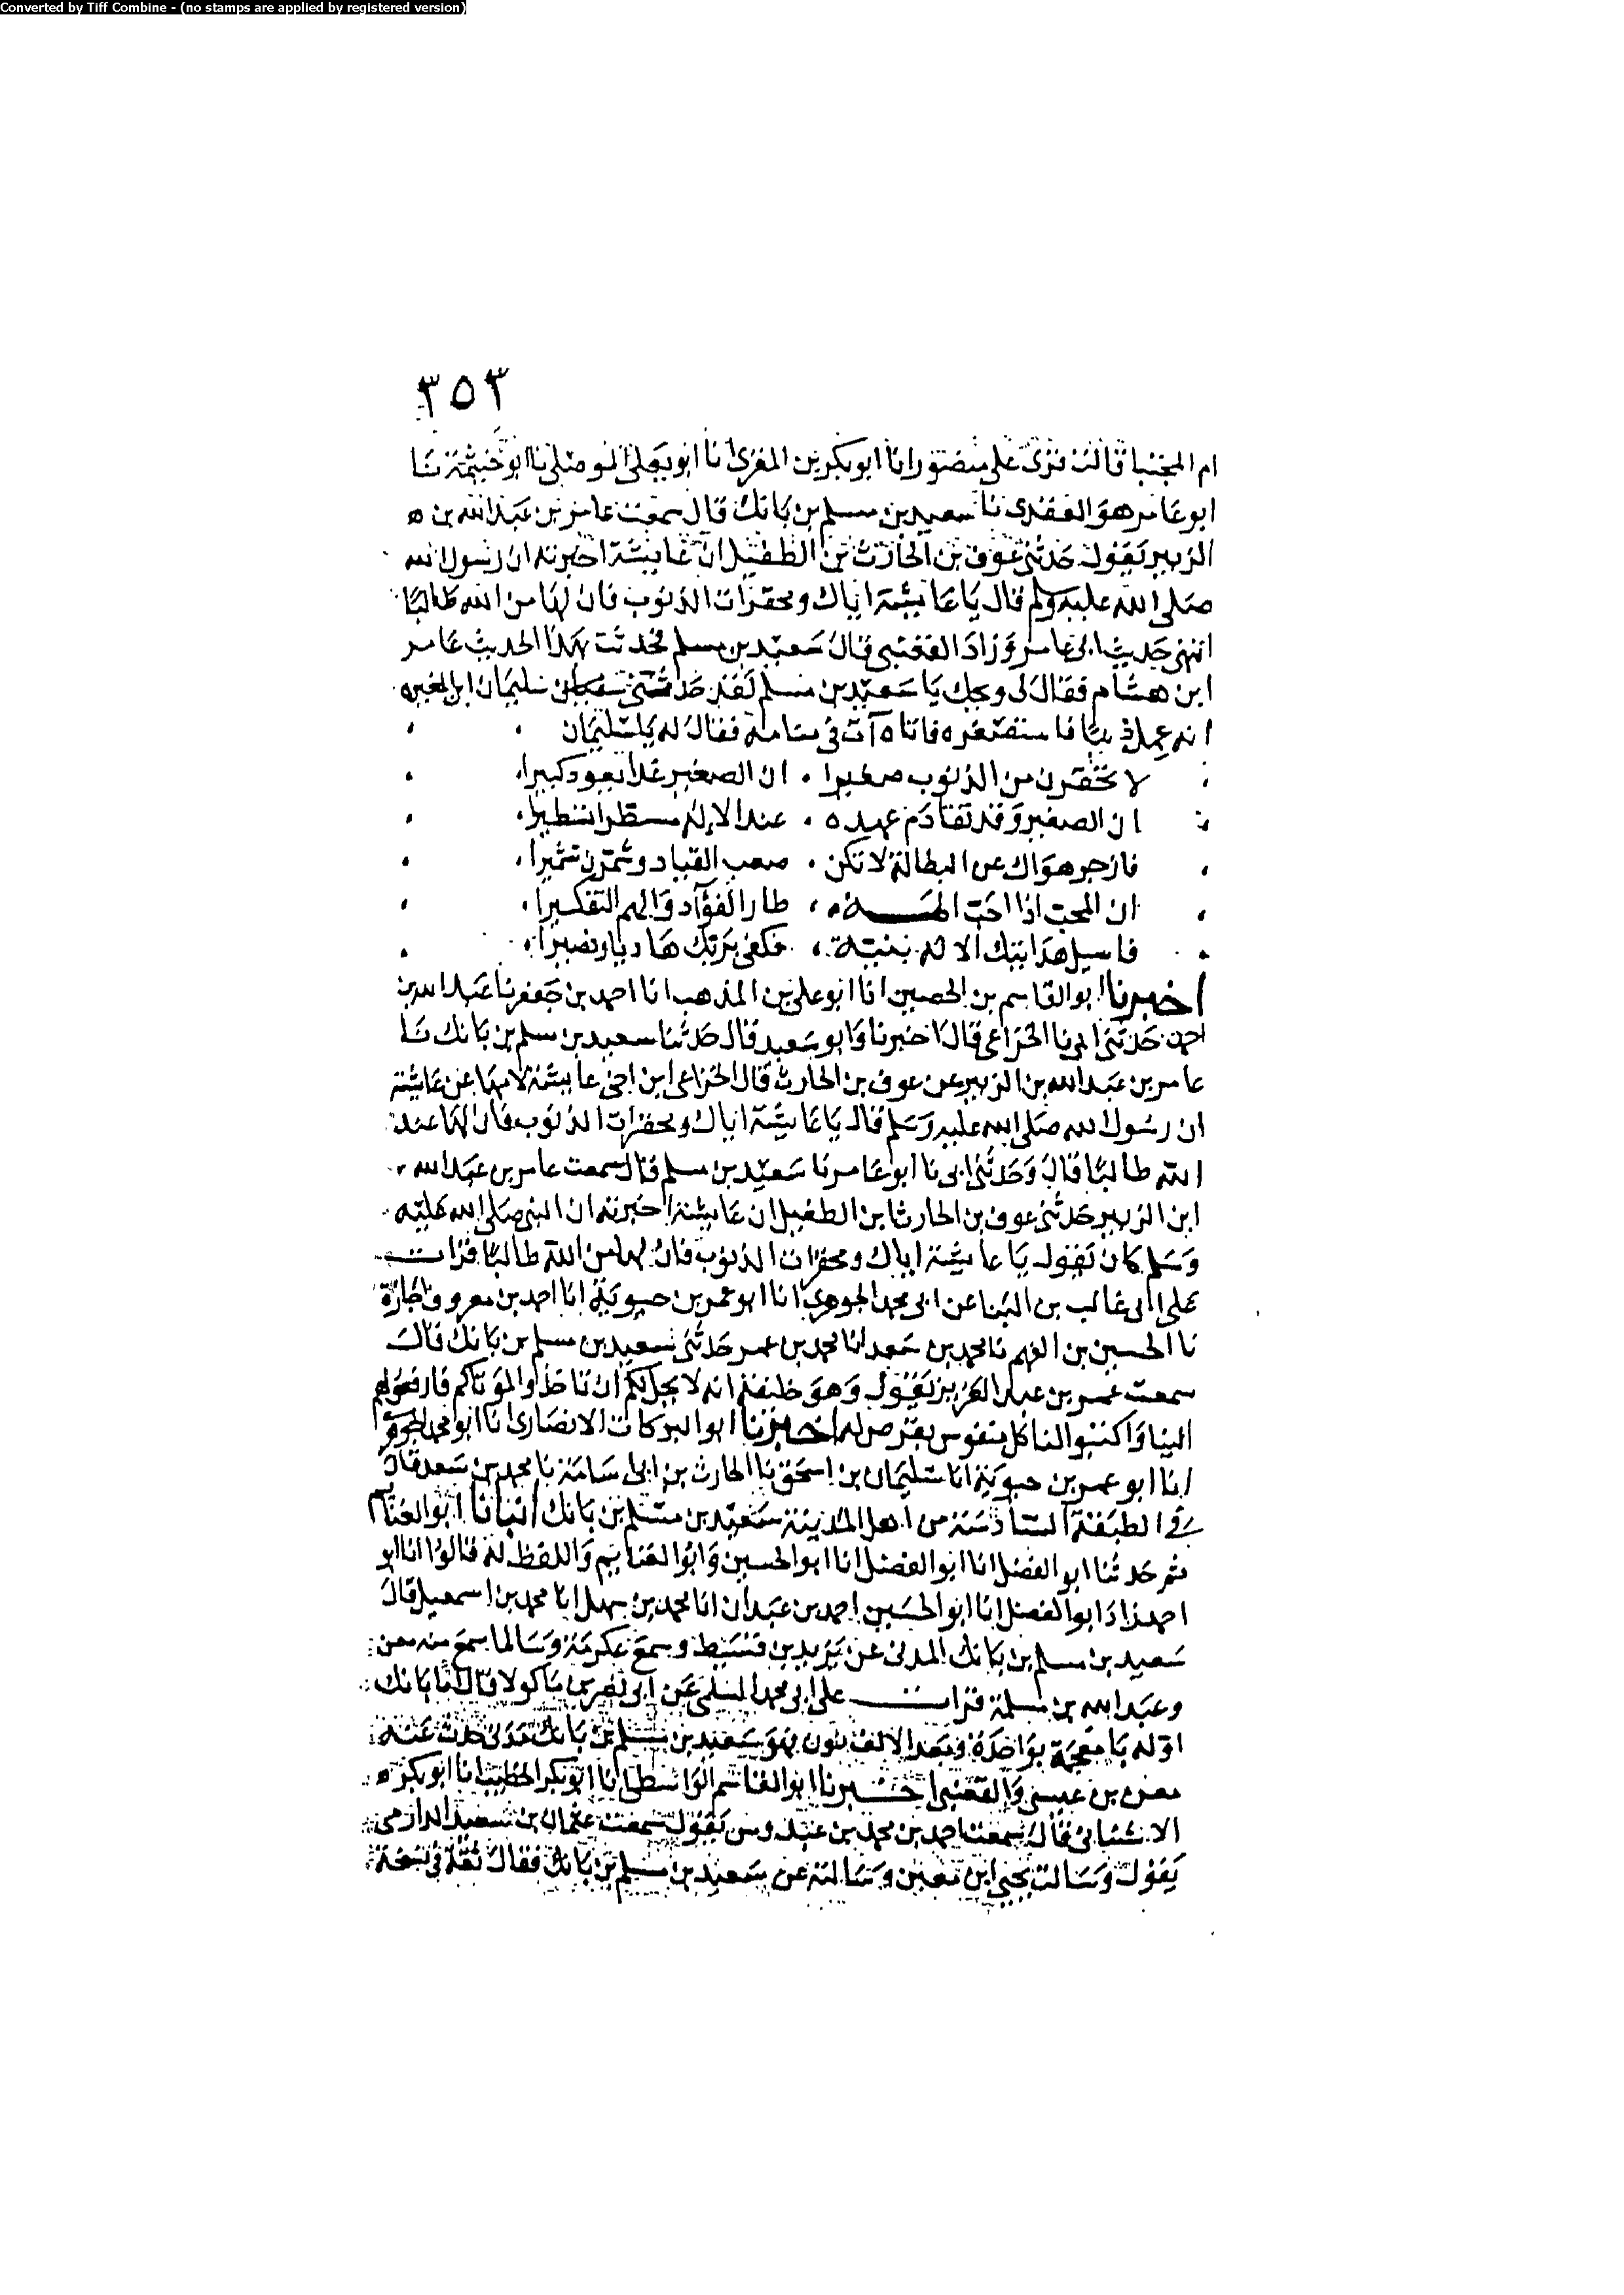 Converted by Tiff Combine - (no stamps are applied by registered version)
٣٥٣
ام المجتبا قالت قرئ على منصور انا ابو بكر بن المقرئ انا ابو يعلى الموصلي نا ابو خيثمة نا
ابو عامر هو العقدي نا سعيد بن مسلم بن بانك قال سمعت عامر بن عبد الله بن
الزبير يقول حدثني عوف بن الحارث بن الطفيل ان عايشة اخبرته ان رسول الله
صلى الله عليه وسلم قال يا عايشة اياك ومحقرات الذنوب فان لها من الله طالبا
انتهى حديث ابي عامر وزاد القعنبي قال سعيد بن مسلم فحدثت بهذا الحديث عامر
ابن هشام فقال لي ويحك يا سعيد بن مسلم لقد حدثني سليمان ابن المغيره
انه عمل ذنبا فاستصغره فاتاه آت في منامه فقال له يا سليمان
لا تحقرن من الذنوب صغيرا ، ان الصغير غدا يعود كبيرا
ان الصغير وقد تقادم عهده ، عند الاله مسطر تسطيرا
فازجر هواك عن البطالة لا تكن ، صعب القياد وشمرن تشميرا
ان المحب اذا احب الهه ، طار الفؤاد والهم التفكيرا
فاسيل هدايتك الاله بنية ، فكفى بربك هاديا ونصيرا
اخبرنا ابو القاسم بن الحصين انا ابو علي بن المذهب انا احمد بن جعفر نا عبد الله بن
احمد حدثني ابي نا الخزاعي قال اخبرنا وابو سعيد قال حدثنا سعيد بن مسلم بن بانك نا
عامر بن عبد الله بن الزبير عن عوف بن الحارث قال الخزاعي ابن اخي عايشة لامها عن عايشة
ان رسول الله صلى الله عليه وسلم قال يا عايشة اياك ومحقرات الذنوب فان لها عند
الله طالبا قال وحدثني ابي نا ابو عامر نا سعيد بن مسلم قال سمعت عامر بن عبد الله
ابن الزبير حدثني عوف بن الحارث ابن الطفيل ان عايشة اخبرته ان النبي صلى الله عليه
وسلم كان يقول يا عايشة اياك ومحقرات الذنوب فان لها من الله طالبا قرات
على ابي غالب بن البنا عن ابي محمد الجوهري انا ابو عمر بن حيوية انا احمد بن معروف اجازة
نا الحسين بن الفهم نا محمد بن سعد انا محمد بن عمر حدثني سعيد بن مسلم بن بانك قال
سمعت عمر بن عبد العزيز يقول وهو خليفة انه لا يحل لكم ان تاخذوا لموتاكم فارفعوهم
الينا واكتبوا لنا كل منفوس يفترض له اخبرنا ابو البركات الانصاري انا ابو محمد الجوهري
انا ابو عمر بن حيوية انا سليمان بن اسحق نا الحارث بن ابي اسامة نا محمد بن سعد قال
في الطبقة السادسة من اهل المدينة سعيد بن مسلم بن بانك انبانا ابو الغنايم
ثم حدثنا ابو الفضل انا ابو الفضل انا ابو الحسين وابو الغنايم واللفظ له قالوا انا ابو
احمد زاد ابو الفضل انا ابو الحسين احمد بن عبدان انا محمد بن سهل انا محمد بن اسمعيل قال
سعيد بن مسلم بن بانك المدني عن يزيد بن قسيط وسمع عكرمة وسالما سمع منه معن
وعبد الله بن مسلمة قرات على ابي محمد السلمي عن ابي نصر بن ماكولا قال اما بانك
اوله با معجمة بواحدة وبعد الالف نون فهو سعيد بن مسلم بن بانك مدني حدث عنه
معن بن عيسى والقعنبي اخبرنا ابو القاسم الواسطي انا ابو بكر الخطيب انا ابو بكر
الاشناني قال سمعت احمد بن محمد بن عبدوس يقول سمعت عثمان بن سعيد الدارمي
يقول وسالت يحيى ابن معين وسالته عن سعيد بن مسلم بن بانك فقال ثقة في نسخة